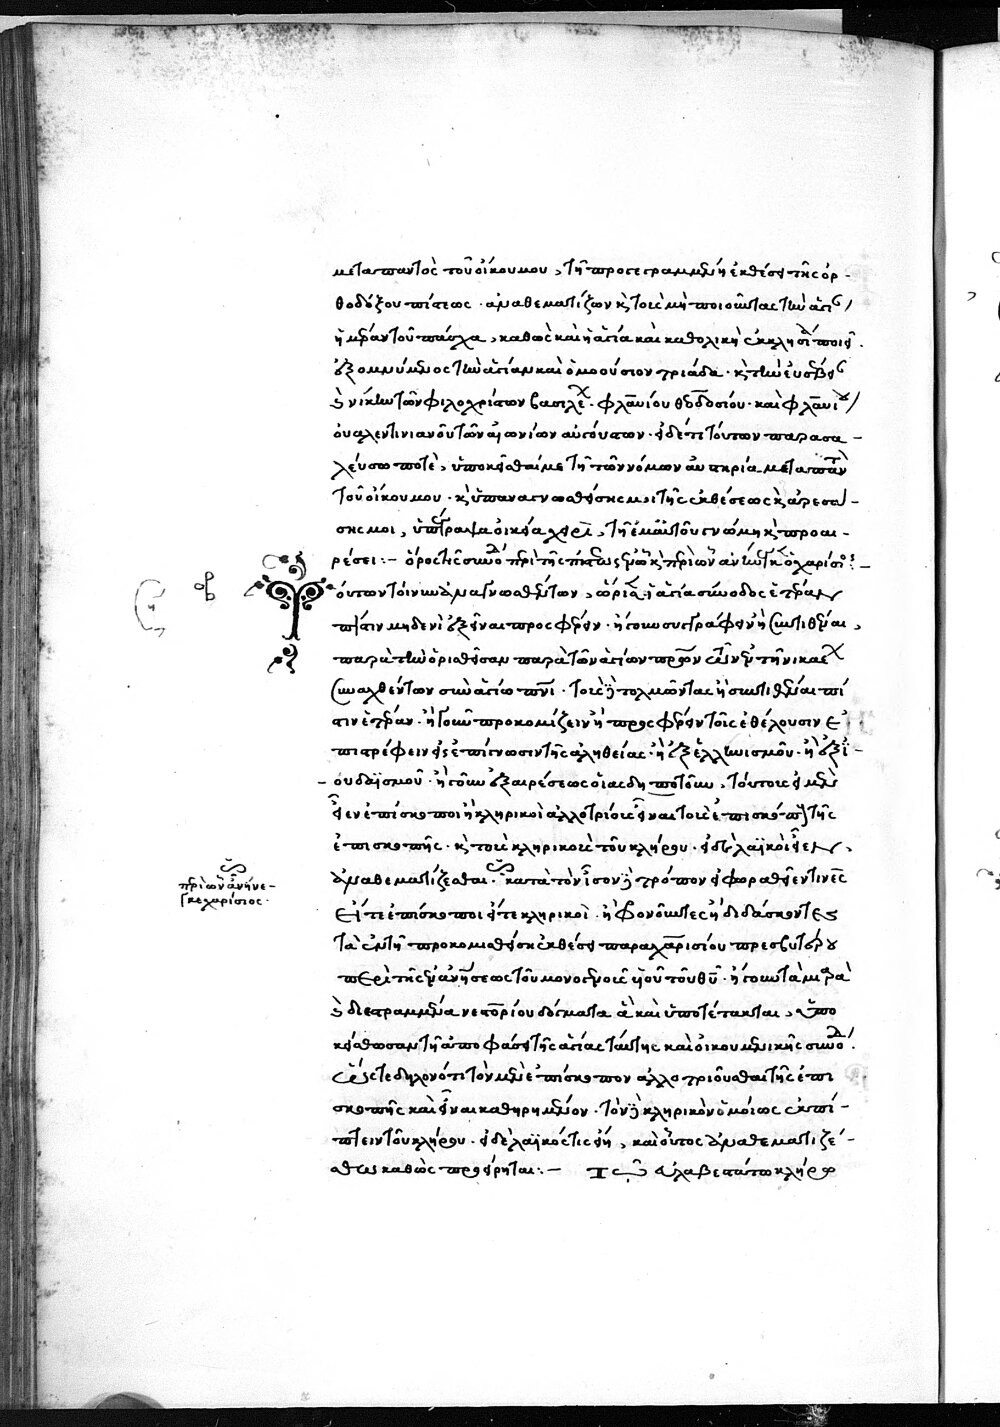 μετα παντὸς τοῦ οἴκου μου, τῆ προγεγραμμένη ἐκθέσει τῆς ὀρ-
θοδόξου πίστεως· ἀναθεματίζων κ τοὺς μὴ ποιοῦντας τὴν ἁγί
ἡμέραν τοῦ πάσχα, καθὼς καὶ ἡ ἁγία καὶ καθολικὴ ἐκκλησί ποιεῖ.
ἐξομνύμενος τὴν ἁγίαν καὶ ὁμοούσιον τριάδα· κ τὴν εὐσέβει
κ νίκην τῶν φιλοχρίστων βασιλέ· φλαυίου θεοδοσίου· καὶ φλαυί
ουαλεντινιανοῦ τῶν αἰωνίων αὐγούστων· εἰ δέ τι τούτων παρασα-
λεύσω ποτὲ, ὑποκεῖσθαί με τῆ τῶν νόμων αὐστηρία μετα παντ
τοῦ οἴκου μου· κ ὑπαναγνωσθείσης μοι τῆς ἐκθέσεως κ ἀρεσά-
σης μοι, ὑπέγραψα οἰκεία χειρὶ, τῆ ἐμαυτοῦ γνώμη κ προαι-
ρέσει:- ὅρος τῆς συνόδ περὶ τῆς πίστεως ἡμῶν κ περὶ ὧν ἀνήνεγκ ὁ χαρίσιος:-
οβ
Τούτων τοίνυν ἀναγνωσθέντων, ὥρισεν ἡ ἁγία σύνοδος ἑτέραν
πίστιν μηδενὶ ἐξεῖναι προσφέρειν· ἤγουν συγγράφειν ἢ συντιθέναι,
παρὰ τὴν ὁρισθεῖσαν παρὰ τῶν ἁγίων πρων τῶν ἐν τῆ νικαέων
συναχθέντων σὺν ἁγίω πνι· τοὺς δὲ τολμῶντας ἢ συντιθέναι πί
στιν ἑτέραν· ἤγουν προκομίζειν ἢ προσφέρειν τοῖς ἐθέλουσιν ἐ
πιστρέφειν εἰς ἐπίγνωσιν τῆς ἀληθείας· ἢ ἐξ ἑλληνισμοῦ· ἢ ἐξ ἰ-
ουδαϊσμοῦ· ἤγουν ἐξ αἱρέσεως οἵας δήποτοῦν, τούτους εἰ μὲν
εἶεν ἐπίσκοποι ἢ κληρικοὶ ἀλλοτρίους εἶναι τοὺς ἐπισκόπ τῆς
ἐπισκοπῆς· κ τοὺς κληρικοὺς τοῦ κλήρου· εἰ δὲ λαϊκοὶ εἶεν,
ἀναθεματίζεσθαι· κατὰ τὸν ἴσον δὲ τρόπον εἰ φωραθεῖέν τινες
περὶ ὧν ἀνήνε-
γκε χαρίσιος·
εἴτε ἐπίσκοποι εἴτε κληρικοὶ· ἢ φρονοῦντες ἢ διδάσκοντες
τὰ ἐν τῆ προκομισθείση ἐκθέσει παρα χαρισίου πρεσβυτέρου
περὶ τῆς ἐνανθρωπήσεως τοῦ μονογενοῦς υἱοῦ τοῦ θυ· ἤγουν τὰ μιαρὰ
κ διεστραμμένα νεστορίου δόγματα ἃ καὶ ὑποτέτακται, ὑπο
κείσθωσαν τῆ ἀποφάσει τῆς ἁγίας ταύτης καὶ οἰκουμενικῆς συνόδ.
ὥστε δηλονότι τὸν μὲν ἐπίσκοπον ἀλλοτριοῦσθαι τῆς ἐπι
σκοπῆς καὶ εἶναι καθηρημένον· τὸν δὲ κληρικὸν ὁμοίως ἐκπί-
πτειν τοῦ κλήρου· εἰ δὲ λαϊκός τις εἴη, καὶ οὗτος ἀναθεματιζέ-
σθω καθὼς προείρηται:-